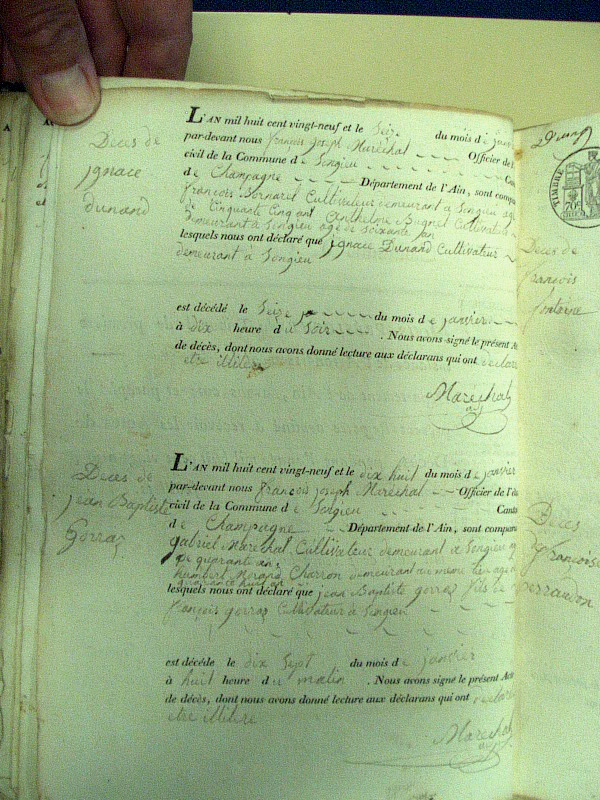 Deces de
ignace
dunand
L'AN mil huit cent vingt-neuf et le Seize du mois de
par-devant nous françois Joseph Maréchal Officier de l'
civil de la Commune de Songieu
de Champagne Département de l'Ain, sont compa
francois Bornarel Cultivateur demeurant à Songieu agé
de Cinquante Cinq ans Anthelme Cultivateur
demeurant à Songieu agé de soixante an
lesquels nous ont déclaré que ignace Dunand Cultivateur
demeurant à Songieu
est décédé le Seize du mois de janvier
à dix heure du Soir . Nous avons signé le présent Acte
de décès, dont nous avons donné lecture aux déclarans qui ont declare
etre illitere
Maréchal
Deces de
jean Baptiste
Gorraz
L'AN mil huit cent vingt-neuf et le dix huit du mois de janvier
par-devant nous françois joseph Maréchal Officier de l'é
civil de la Commune de Songieu Canto
de Champagne Département de l'Ain, sont compara
gabriel Maréchal Cultivateur demeurant à Songieu
de quarant an
humbert Charron demeurant au meme lieu agé
quarante huit an
lesquels nous ont déclaré que jean Baptiste gorraz fils
françois gorraz Cultivateur à Songieu
est décédé le dix sept du mois de janvier
à huit heure du matin . Nous avons signé le présent Acte
de décès, dont nous avons donné lecture aux déclarans qui ont declare
etre illitere
Maréchal
TIMBRE
Deces de
françois
fontaine
Deces
françoise
perraudon